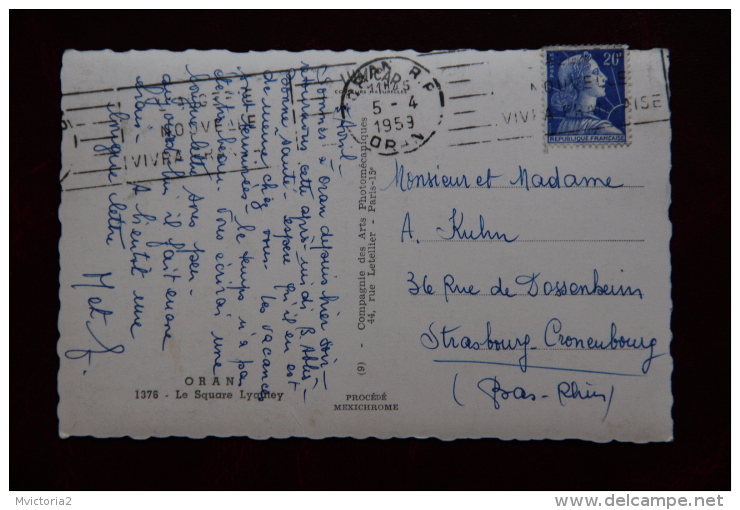 5 Avril -
Sommes à Oran depuis hier soir -
cette après-midi B. Abbès -
Bonne santé - espère qu'il en est
de même chez vous - les vacances
terminées - le temps n'a pas
été beau. Vous écrirai une
longue lettre sous peu -
aujourd'hui il fait encore
A bientôt une
longue lettre
M et J.
ORAN
1376 - Le Square Lyautey
(9) - Compagnie des Arts Photomécaniques
44, rue Letellier - Paris-15e
PROCÉDÉ
MEXICHROME
ORAN R.P
5 - 4
1959
ORAN
NOUVELLE
VIVRA
NOUVELLE
VIVRA FRANÇAISE
20F
REPUBLIQUE FRANÇAISE
Monsieur et Madame
A. Kuhn
36 Rue de Dossenheim
Strasbourg-Cronenbourg
(Bas-Rhin)
Mvictoria2
delcampe.net